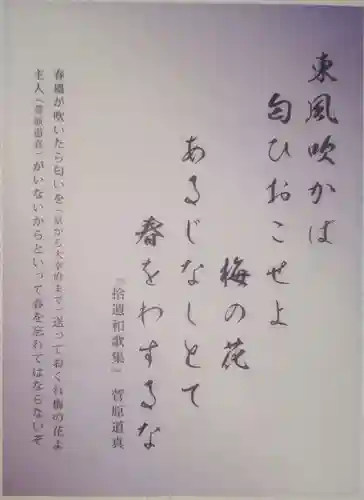 東風吹かば
匂ひおこせよ
梅の花
あるじなしとて
春をわするな
『拾遺和歌集』 菅原道真
春風が吹いたら匂いを（京から大宰府まで）送っておくれ梅の花よ
主人（菅原道真）がいないからといって春を忘れてはならないぞ